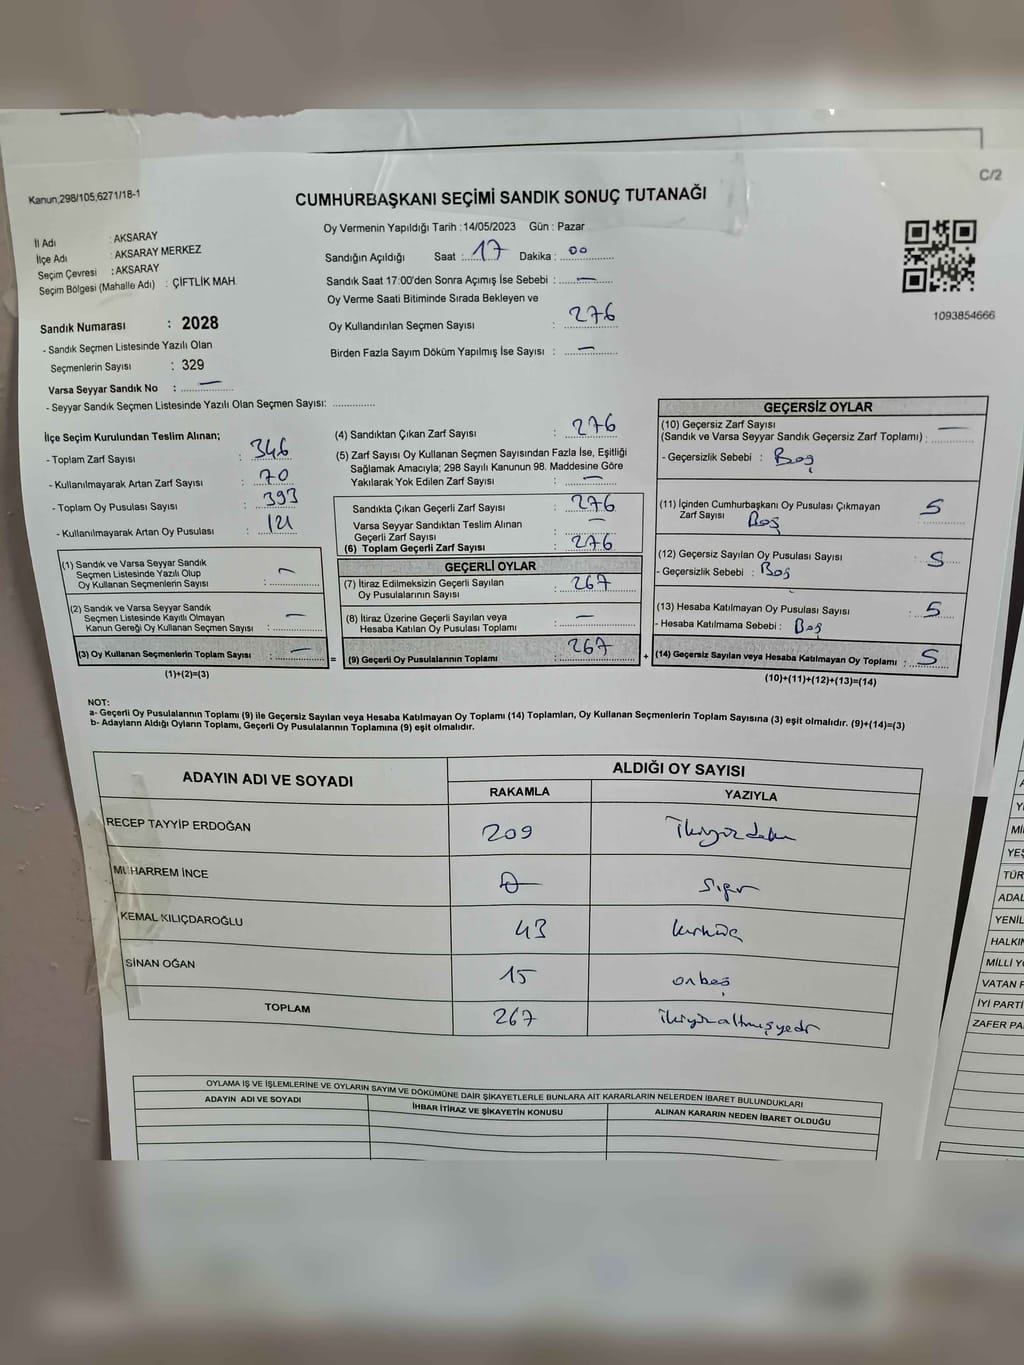 C/2
Kanun,298/105,6271/18-1
CUMHURBAŞKANI SEÇİMİ SANDIK SONUÇ TUTANAĞI
İl Adı : AKSARAY
İlçe Adı : AKSARAY MERKEZ
Seçim Çevresi : AKSARAY
Seçim Bölgesi (Mahalle Adı) : ÇİFTLİK MAH
Sandık Numarası : 2028
- Sandık Seçmen Listesinde Yazılı Olan
Seçmenlerin Sayısı : 329
Varsa Seyyar Sandık No : —
- Seyyar Sandık Seçmen Listesinde Yazılı Olan Seçmen Sayısı:
Oy Vermenin Yapıldığı Tarih :14/05/2023 Gün : Pazar
Sandığın Açıldığı Saat : 17 Dakika : 00
Sandık Saat 17:00'den Sonra Açımış İse Sebebi : —
Oy Verme Saati Bitiminde Sırada Bekleyen ve
Oy Kullandırılan Seçmen Sayısı : 276
Birden Fazla Sayım Döküm Yapılmış İse Sayısı : —
1093854666
İlçe Seçim Kurulundan Teslim Alınan;
- Toplam Zarf Sayısı : 346
- Kullanılmayarak Artan Zarf Sayısı : 70
- Toplam Oy Pusulası Sayısı : 393
- Kullanılmayarak Artan Oy Pusulası : 121
(1) Sandık ve Varsa Seyyar Sandık
Seçmen Listesinde Yazılı Olup
Oy Kullanan Seçmenlerin Sayısı : —
(2) Sandık ve Varsa Seyyar Sandık
Seçmen Listesinde Kayıtlı Olmayan
Kanun Gereği Oy Kullanan Seçmen Sayısı : —
(3) Oy Kullanan Seçmenlerin Toplam Sayısı : —
(1)+(2)=(3)
(4) Sandıktan Çıkan Zarf Sayısı : 276
(5) Zarf Sayısı Oy Kullanan Seçmen Sayısından Fazla İse, Eşitliği
Sağlamak Amacıyla; 298 Sayılı Kanunun 98. Maddesine Göre
Yakılarak Yok Edilen Zarf Sayısı : —
Sandıkta Çıkan Geçerli Zarf Sayısı : 276
Varsa Seyyar Sandıktan Teslim Alınan
Geçerli Zarf Sayısı : —
(6) Toplam Geçerli Zarf Sayısı : 276
GEÇERLİ OYLAR
(7) İtiraz Edilmeksizin Geçerli Sayılan
Oy Pusulalarının Sayısı : 267
(8) İtiraz Üzerine Geçerli Sayılan veya
Hesaba Katılan Oy Pusulası Toplamı : —
= (9) Geçerli Oy Pusulalarının Toplamı : 267
GEÇERSİZ OYLAR
(10) Geçersiz Zarf Sayısı
(Sandık ve Varsa Seyyar Sandık Geçersiz Zarf Toplamı) : —
- Geçersizlik Sebebi : Boş
(11) İçinden Cumhurbaşkanı Oy Pusulası Çıkmayan
Zarf Sayısı Boş : 5
(12) Geçersiz Sayılan Oy Pusulası Sayısı : 5
- Geçersizlik Sebebi : Boş
(13) Hesaba Katılmayan Oy Pusulası Sayısı : 5
- Hesaba Katılmama Sebebi : Boş
+ (14) Geçersiz Sayılan veya Hesaba Katılmayan Oy Toplamı : 5
(10)+(11)+(12)+(13)=(14)
NOT:
a- Geçerli Oy Pusulalarının Toplamı (9) ile Geçersiz Sayılan veya Hesaba Katılmayan Oy Toplamı (14) Toplamları, Oy Kullanan Seçmenlerin Toplam Sayısına (3) eşit olmalıdır. (9)+(14)=(3)
b- Adayların Aldığı Oyların Toplamı, Geçerli Oy Pusulalarının Toplamına (9) eşit olmalıdır.
ADAYIN ADI VE SOYADI ALDIĞI OY SAYISI
RAKAMLA YAZIYLA
RECEP TAYYİP ERDOĞAN 209
MUHARREM İNCE 0 Sıfır
KEMAL KILIÇDAROĞLU 43 kırküç
SİNAN OĞAN 15 onbeş
TOPLAM 267 ikiyüzaltmışyedi
OYLAMA İŞ VE İŞLEMLERİNE VE OYLARIN SAYIM VE DÖKÜMÜNE DAİR ŞİKAYETLERLE BUNLARA AİT KARARLARIN NELERDEN İBARET BULUNDUKLARI
ADAYIN ADI VE SOYADI İHBAR İTİRAZ VE ŞİKAYETİN KONUSU ALINAN KARARIN NEDEN İBARET OLDUĞU
YE
TÜR
ADAL
YENİL
HALKI
MİLLİ Y
VATAN P
İYİ PARTİ
ZAFER PA